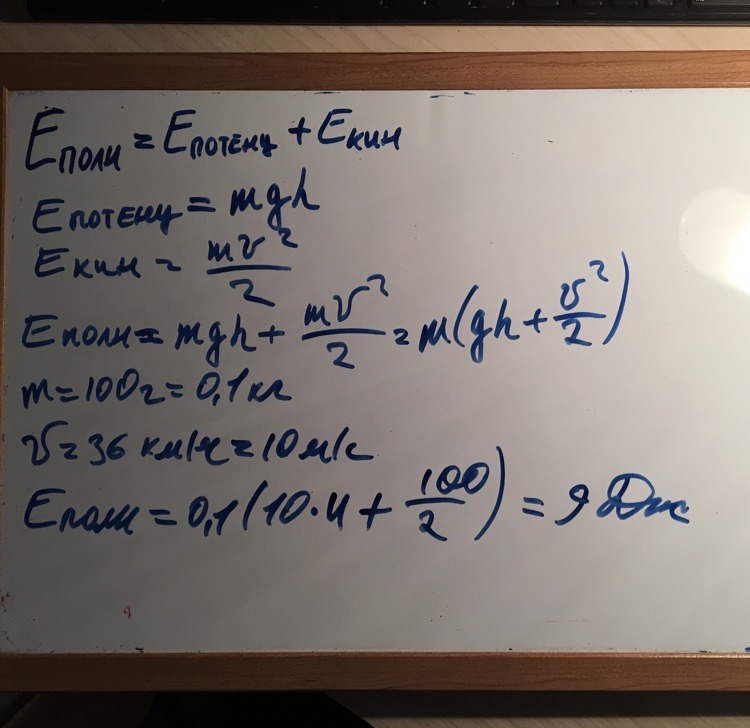 Eполн = Eпотенц + Eкин
Eпотенц = mgh
Eкин = mv²/2
Eполн = mgh + mv²/2 = m(gh + v²/2)
m = 100г = 0,1 кг
v = 36 км/ч = 10 м/с
Eполн = 0,1(10·4 + 100/2) = 9 Дж